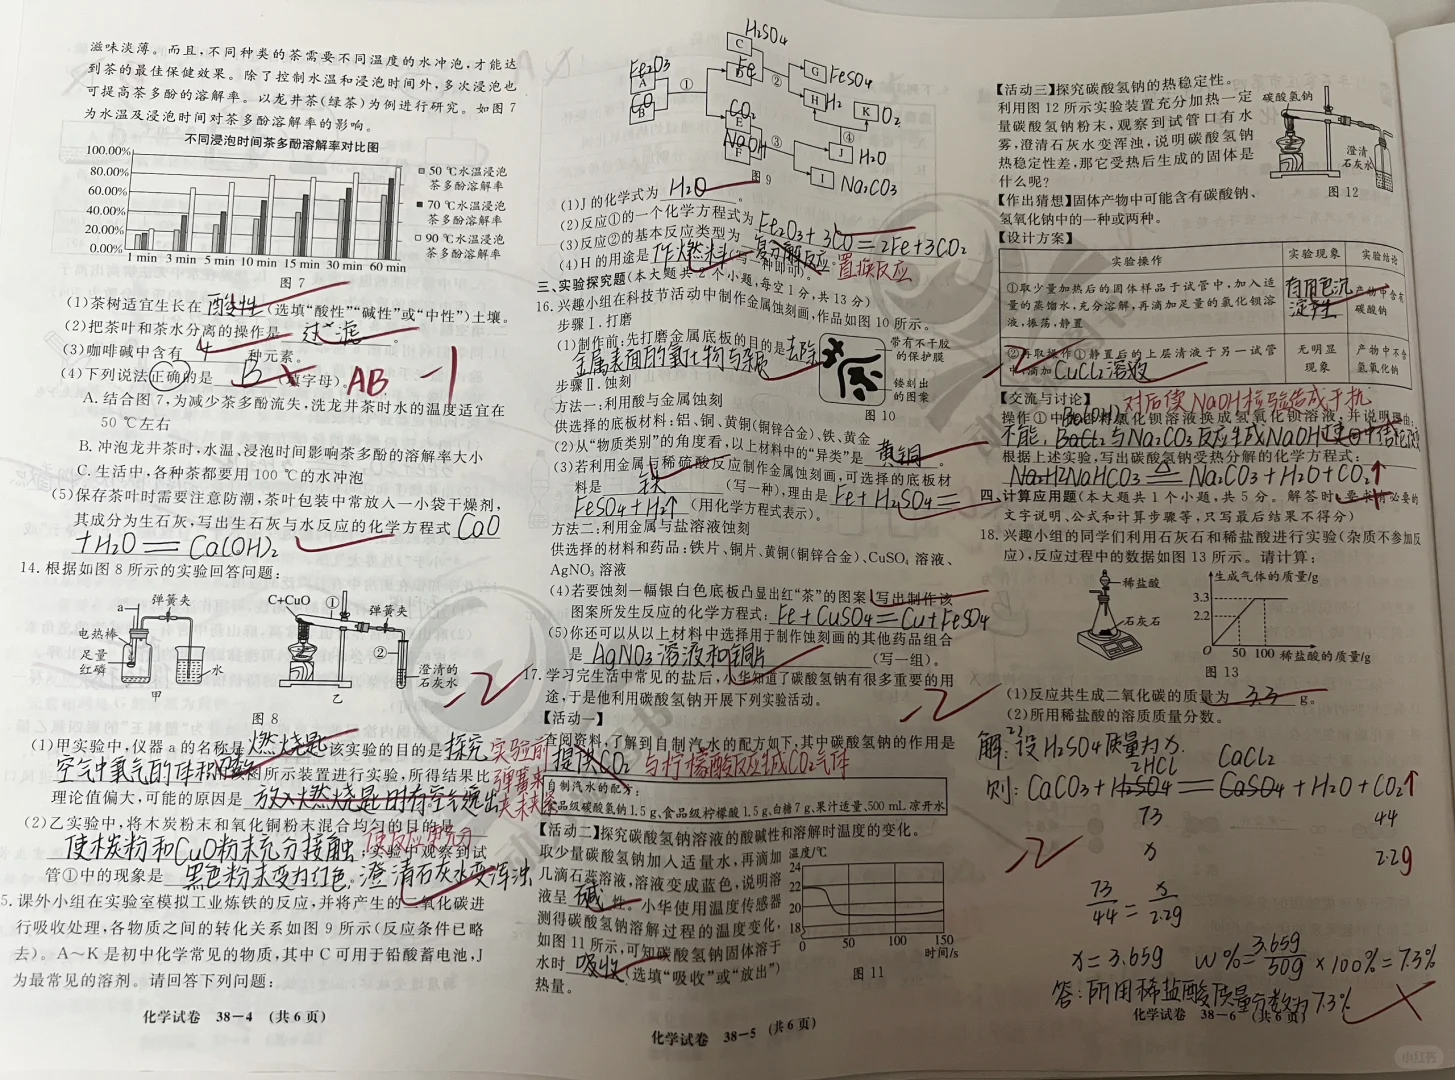 滋味淡薄。而且,不同种类的茶需要不同温度的水冲泡,才能达
到茶的最佳保健效果。除了控制水温和浸泡时间外,多次浸泡也
可提高茶多酚的溶解率。以龙井茶(绿茶)为例进行研究。如图7
为水温及浸泡时间对茶多酚溶解率的影响。
不同浸泡时间茶多酚溶解率对比图
100.00%
80.00%
60.00%
40.00%
20.00%
0.00%
1 min 3 min 5 min 10 min 15 min 30 min 60 min
50 ℃水温浸泡
茶多酚溶解率
70 ℃水温浸泡
茶多酚溶解率
90 ℃水温浸泡
茶多酚溶解率
图7
(1)茶树适宜生长在 酸性 (选填“酸性”“碱性”或“中性”)土壤。
(2)把茶叶和茶水分离的操作是 过滤 。
(3)咖啡碱中含有 4 种元素。
(4)下列说法正确的是 B (填字母)。 AB -1
A. 结合图7,为减少茶多酚流失,洗龙井茶时水的温度适宜在
50 ℃左右
B. 冲泡龙井茶时,水温、浸泡时间影响茶多酚的溶解率大小
C. 生活中,各种茶都要用100 ℃的水冲泡
(5)保存茶叶时需要注意防潮,茶叶包装中常放入一小袋干燥剂,
其成分为生石灰,写出生石灰与水反应的化学方程式 CaO
+H₂O = Ca(OH)₂
14. 根据如图8所示的实验回答问题:
a
弹簧夹
电热棒
足量
红磷
水
甲
C+CuO
①
弹簧夹
②
澄清的
石灰水
乙
图8
-2
(1)甲实验中,仪器a的名称是 燃烧匙 该实验的目的是 探究 实验前
空气中氧气的体积 图所示装置进行实验,所得结果比 弹簧夹
理论值偏大,可能的原因是 放入燃烧匙时有空气逸出 未夹紧
(2)乙实验中,将木炭粉末和氧化铜粉末混合均匀的目的是
使木炭粉和CuO粉末充分接触 ;实验中观察到试 使反应更充分
管①中的现象是 黑色粉末变为红色。澄清石灰水变浑浊
5. 课外小组在实验室模拟工业炼铁的反应,并将产生的二氧化碳进
行吸收处理,各物质之间的转化关系如图9所示(反应条件已略
去)。A~K是初中化学常见的物质,其中C可用于铅酸蓄电池,J
为最常见的溶剂。请回答下列问题:
化学试卷 38-4 (共6页)
H₂SO₄
C
Fe₂O₃
A
CO
B
①
Fe
②
G
FeSO₄
H
H₂
K
O₂
CO₂
E
NaOH
F
③
④
J
H₂O
I
Na₂CO₃
图9
(1)J的化学式为 H₂O 。
(2)反应①的一个化学方程式为 Fe₂O₃+3CO=2Fe+3CO₂
(3)反应②的基本反应类型为 复分解反应。 置换反应
(4)H的用途是 作燃料 (写一种即可)。
三、实验探究题(本大题共2个小题,每空1分,共13分)
16. 兴趣小组在科技节活动中制作金属蚀刻画,作品如图10所示。
步骤Ⅰ. 打磨
(1)制作前:先打磨金属底板的目的是 去除
金属表面的氧化物与杂质
带有不干胶
的保护膜
镂刻出
的图案
图10
步骤Ⅱ. 蚀刻
方法一:利用酸与金属蚀刻
供选择的底板材料:铝、铜、黄铜(铜锌合金)、铁、黄金
(2)从“物质类别”的角度看,以上材料中的“异类”是 黄铜 。
(3)若利用金属与稀硫酸反应制作金属蚀刻画,可选择的底板材
料是 铁 (写一种),理由是 Fe+H₂SO₄=
FeSO₄+H₂↑ (用化学方程式表示)。
方法二:利用金属与盐溶液蚀刻
供选择的材料和药品:铁片、铜片、黄铜(铜锌合金)、CuSO₄溶液、
AgNO₃溶液
(4)若要蚀刻一幅银白色底板凸显出红“茶”的图案,写出制作该
图案所发生反应的化学方程式: Fe+CuSO₄=Cu+FeSO₄
(5)你还可以从以上材料中选择用于制作蚀刻画的其他药品组合
是 AgNO₃溶液和铜片 (写一组)。
17. 学习完生活中常见的盐后,小华知道了碳酸氢钠有很多重要的用
途,于是他利用碳酸氢钠开展下列实验活动。
-2
【活动一】
查阅资料,了解到自制汽水的配方如下,其中碳酸氢钠的作用是
提供CO₂ 与柠檬酸反应生成CO₂气体
自制汽水的配方:
食品级碳酸氢钠1.5 g、食品级柠檬酸1.5 g、白糖7 g、果汁适量、500 mL凉开水
【活动二】探究碳酸氢钠溶液的酸碱性和溶解时温度的变化。
取少量碳酸氢钠加入适量水,再滴加
几滴石蕊溶液,溶液变成蓝色,说明溶
液呈 碱 性。小华使用温度传感器
测得碳酸氢钠溶解过程的温度变化,
如图11所示,可知碳酸氢钠固体溶于
水时 吸收 (选填“吸收”或“放出”)
热量。
温度/℃
24
22
20
18
0 50 100 150
时间/s
图11
化学试卷 38-5 (共6页)
【活动三】探究碳酸氢钠的热稳定性。
利用图12所示实验装置充分加热一定
量碳酸氢钠粉末,观察到试管口有水
雾,澄清石灰水变浑浊,说明碳酸氢钠
热稳定性差,那它受热后生成的固体是
什么呢?
碳酸氢钠
澄清
石灰水
图12
【作出猜想】固体产物中可能含有碳酸钠、
氢氧化钠中的一种或两种。
【设计方案】
实验操作 实验现象 实验结论
①取少量加热后的固体样品于试管中,加入适
量的蒸馏水,充分溶解,再滴加足量的氯化钡溶
液,振荡,静置
有白色沉淀产生
产物中含有
碳酸钠
②再取操作①静置后的上层清液于另一试管
中,滴加 CuCl₂溶液
无明显
现象
产物中不含
氢氧化钠
-2
【交流与讨论】 对后续NaOH检验造成干扰
操作①中能否将氯化钡溶液换成氢氧化钡溶液,并说明理由:
Ba(OH)₂
不能, BaCl₂与Na₂CO₃反应生成NaOH
根据上述实验,写出碳酸氢钠受热分解的化学方程式:
2NaHCO₃ △= Na₂CO₃+H₂O+CO₂↑
四、计算应用题(本大题共1个小题,共5分。解答时,要求有必要的
文字说明、公式和计算步骤等,只写最后结果不得分)
18. 兴趣小组的同学们利用石灰石和稀盐酸进行实验(杂质不参加反
应),反应过程中的数据如图13所示。请计算:
稀盐酸
石灰石
生成气体的质量/g
3.3
2.2
0 50 100 稀盐酸的质量/g
图13
(1)反应共生成二氧化碳的质量为 3.3 g。
(2)所用稀盐酸的溶质质量分数。
解:设H₂SO₄质量为x.
2HCl CaCl₂
则: CaCO₃+H₂SO₄=CaSO₄+H₂O+CO₂↑
73 44
x 2.2g
73/44 = x/2.2g
x=3.65g W%=3.65g/50g×100%=7.3%
答:所用稀盐酸质量分数为7.3%
化学试卷 38-6 (共6页)
-2
小红书